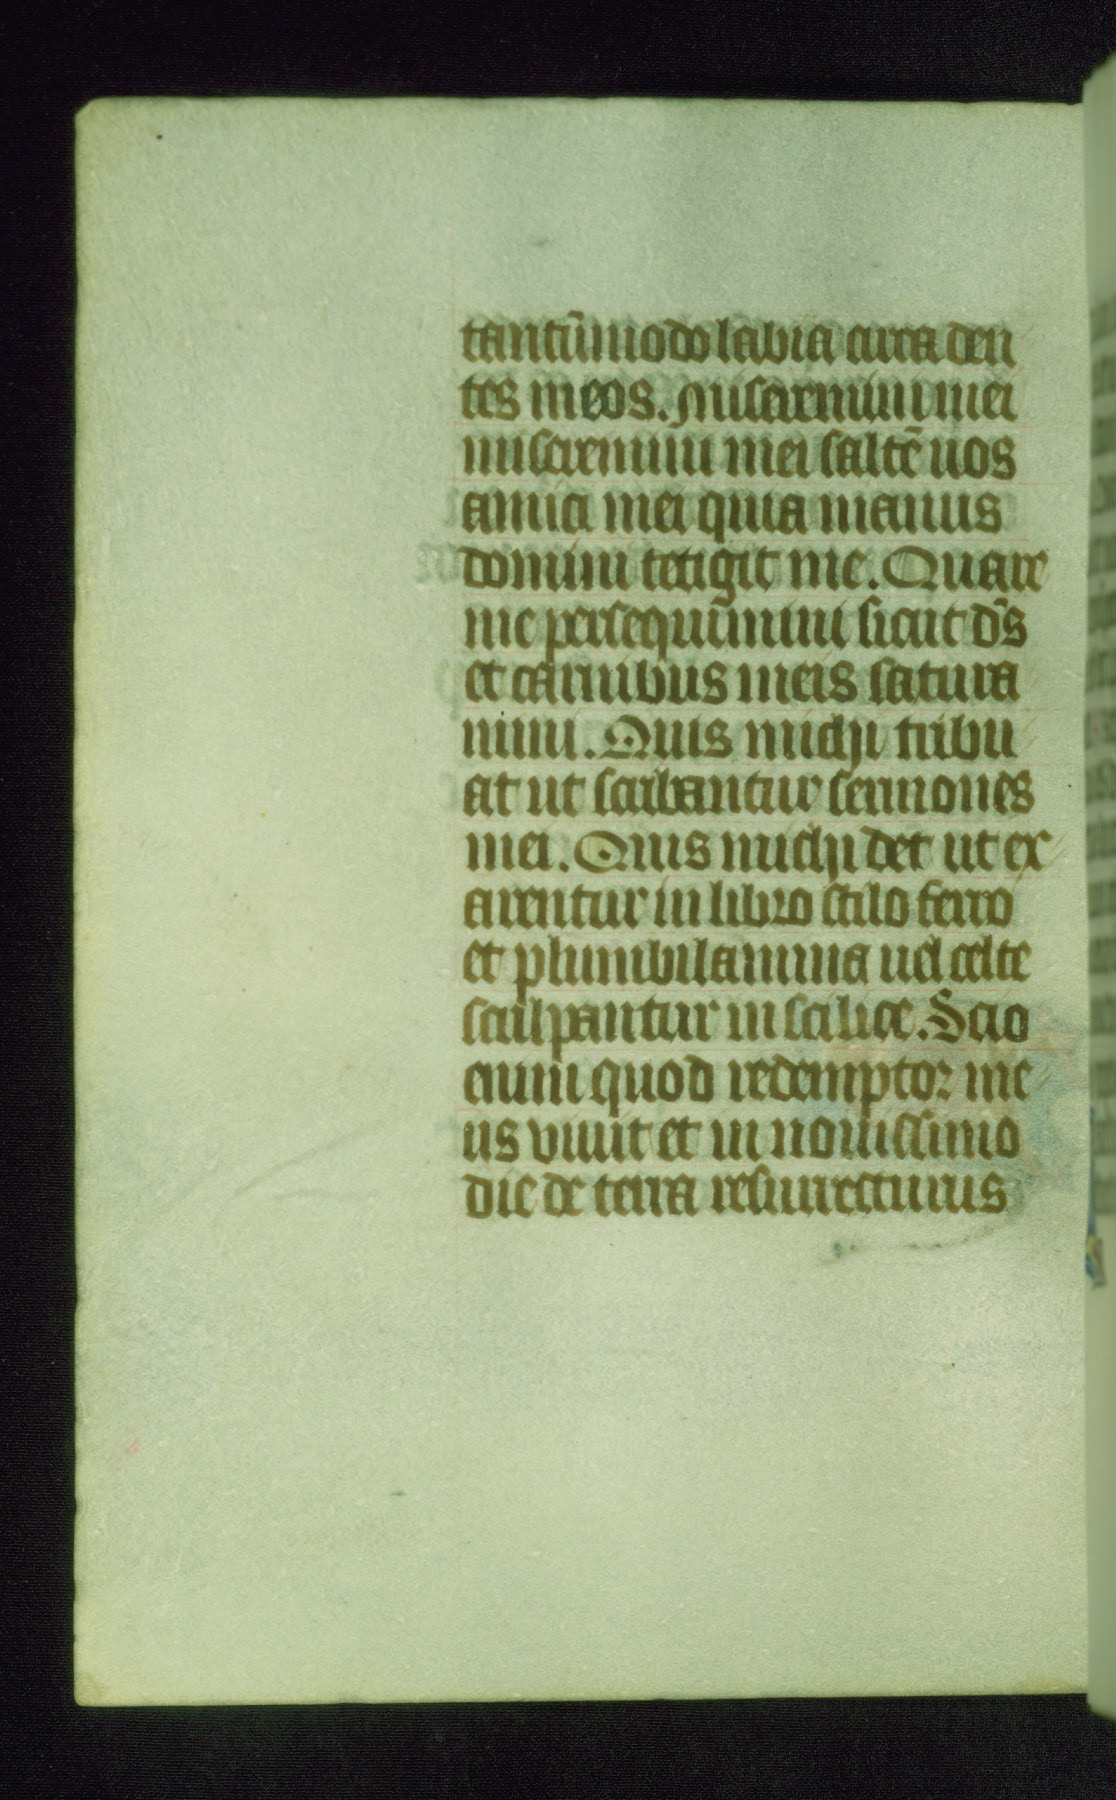 tantũmodo labia circa den
tes meos. Miseremini mei
miseremini mei saltẽ uos
amici mei quia manus
domini tetigit me. Quare
me persequĩmini sicut dñs
et carnibus meis satura
mini. Quis michi tribu
at ut scribantur sermones
mei. Quis michi det ut ex
arentur in libro stilo ferro
et plumbi lamina uel celte
sculpantur in scilice. Scio
enim quod redemptor me
us viuit et in nouissimo
die de terra resurrecturus